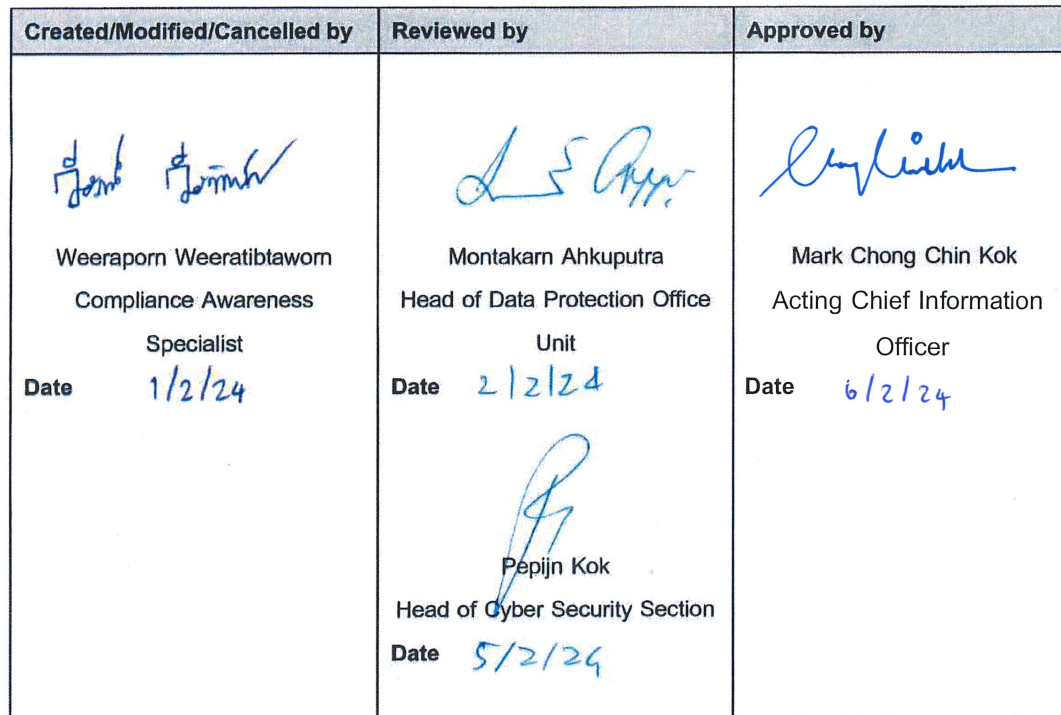 Created/Modified/Cancelled by
Reviewed by
Approved by
Weeraporn Weeratibtaworn
Compliance Awareness
Specialist
Date 1/2/24
Montakarn Ahkuputra
Head of Data Protection Office
Unit
Date 2/2/24
Pepijn Kok
Head of Cyber Security Section
Date 5/2/24
Mark Chong Chin Kok
Acting Chief Information
Officer
Date 6/2/24